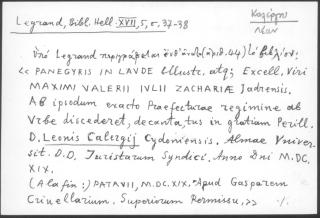 Καλέργης
Λέων
Legrand, Bibl. Hell. XVII, 5, σ. 37-38
Ὑπὸ Legrand περιγράφεται ἀριθ. 44) τὸ βιβλίον:
<< PANEGYRIS IN LAVDE Illustr. atq; Excell. Viri
MAXIMI VALERII IVLII ZACHARIÆ Jadrensis.
AB ipsodum exacto Praefecturae regimine ab
Vrbe discederet, decanta, tus in gratiam Perill.
D. Leonis Calergij Cydoniensis. Almae Vniver-
sit. D.D. Juristarum Syndici. Anno Dni M.DC.
XIX.
(A la fin:) PATAVII, M.DC.XIX. Apud Gasparem
Crivellarium. Superiorum Permissu, >> ./.